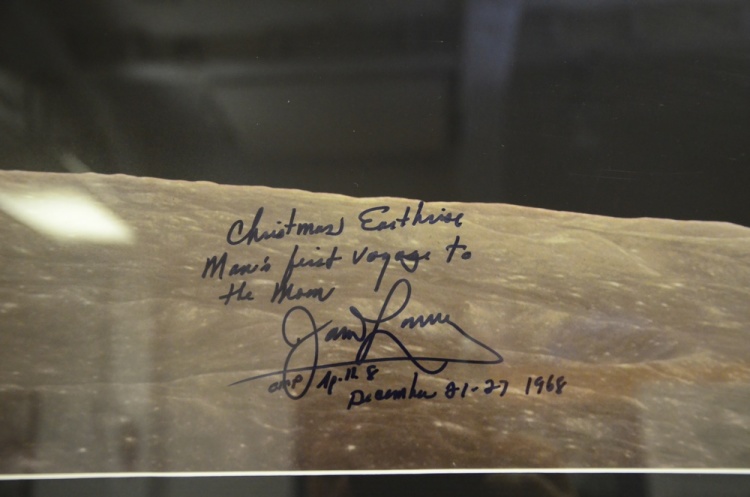 Christmas Earthrise
Man's first voyage to
the Moon
James Lovell
CMP Ap. 8
December 21-27 1968